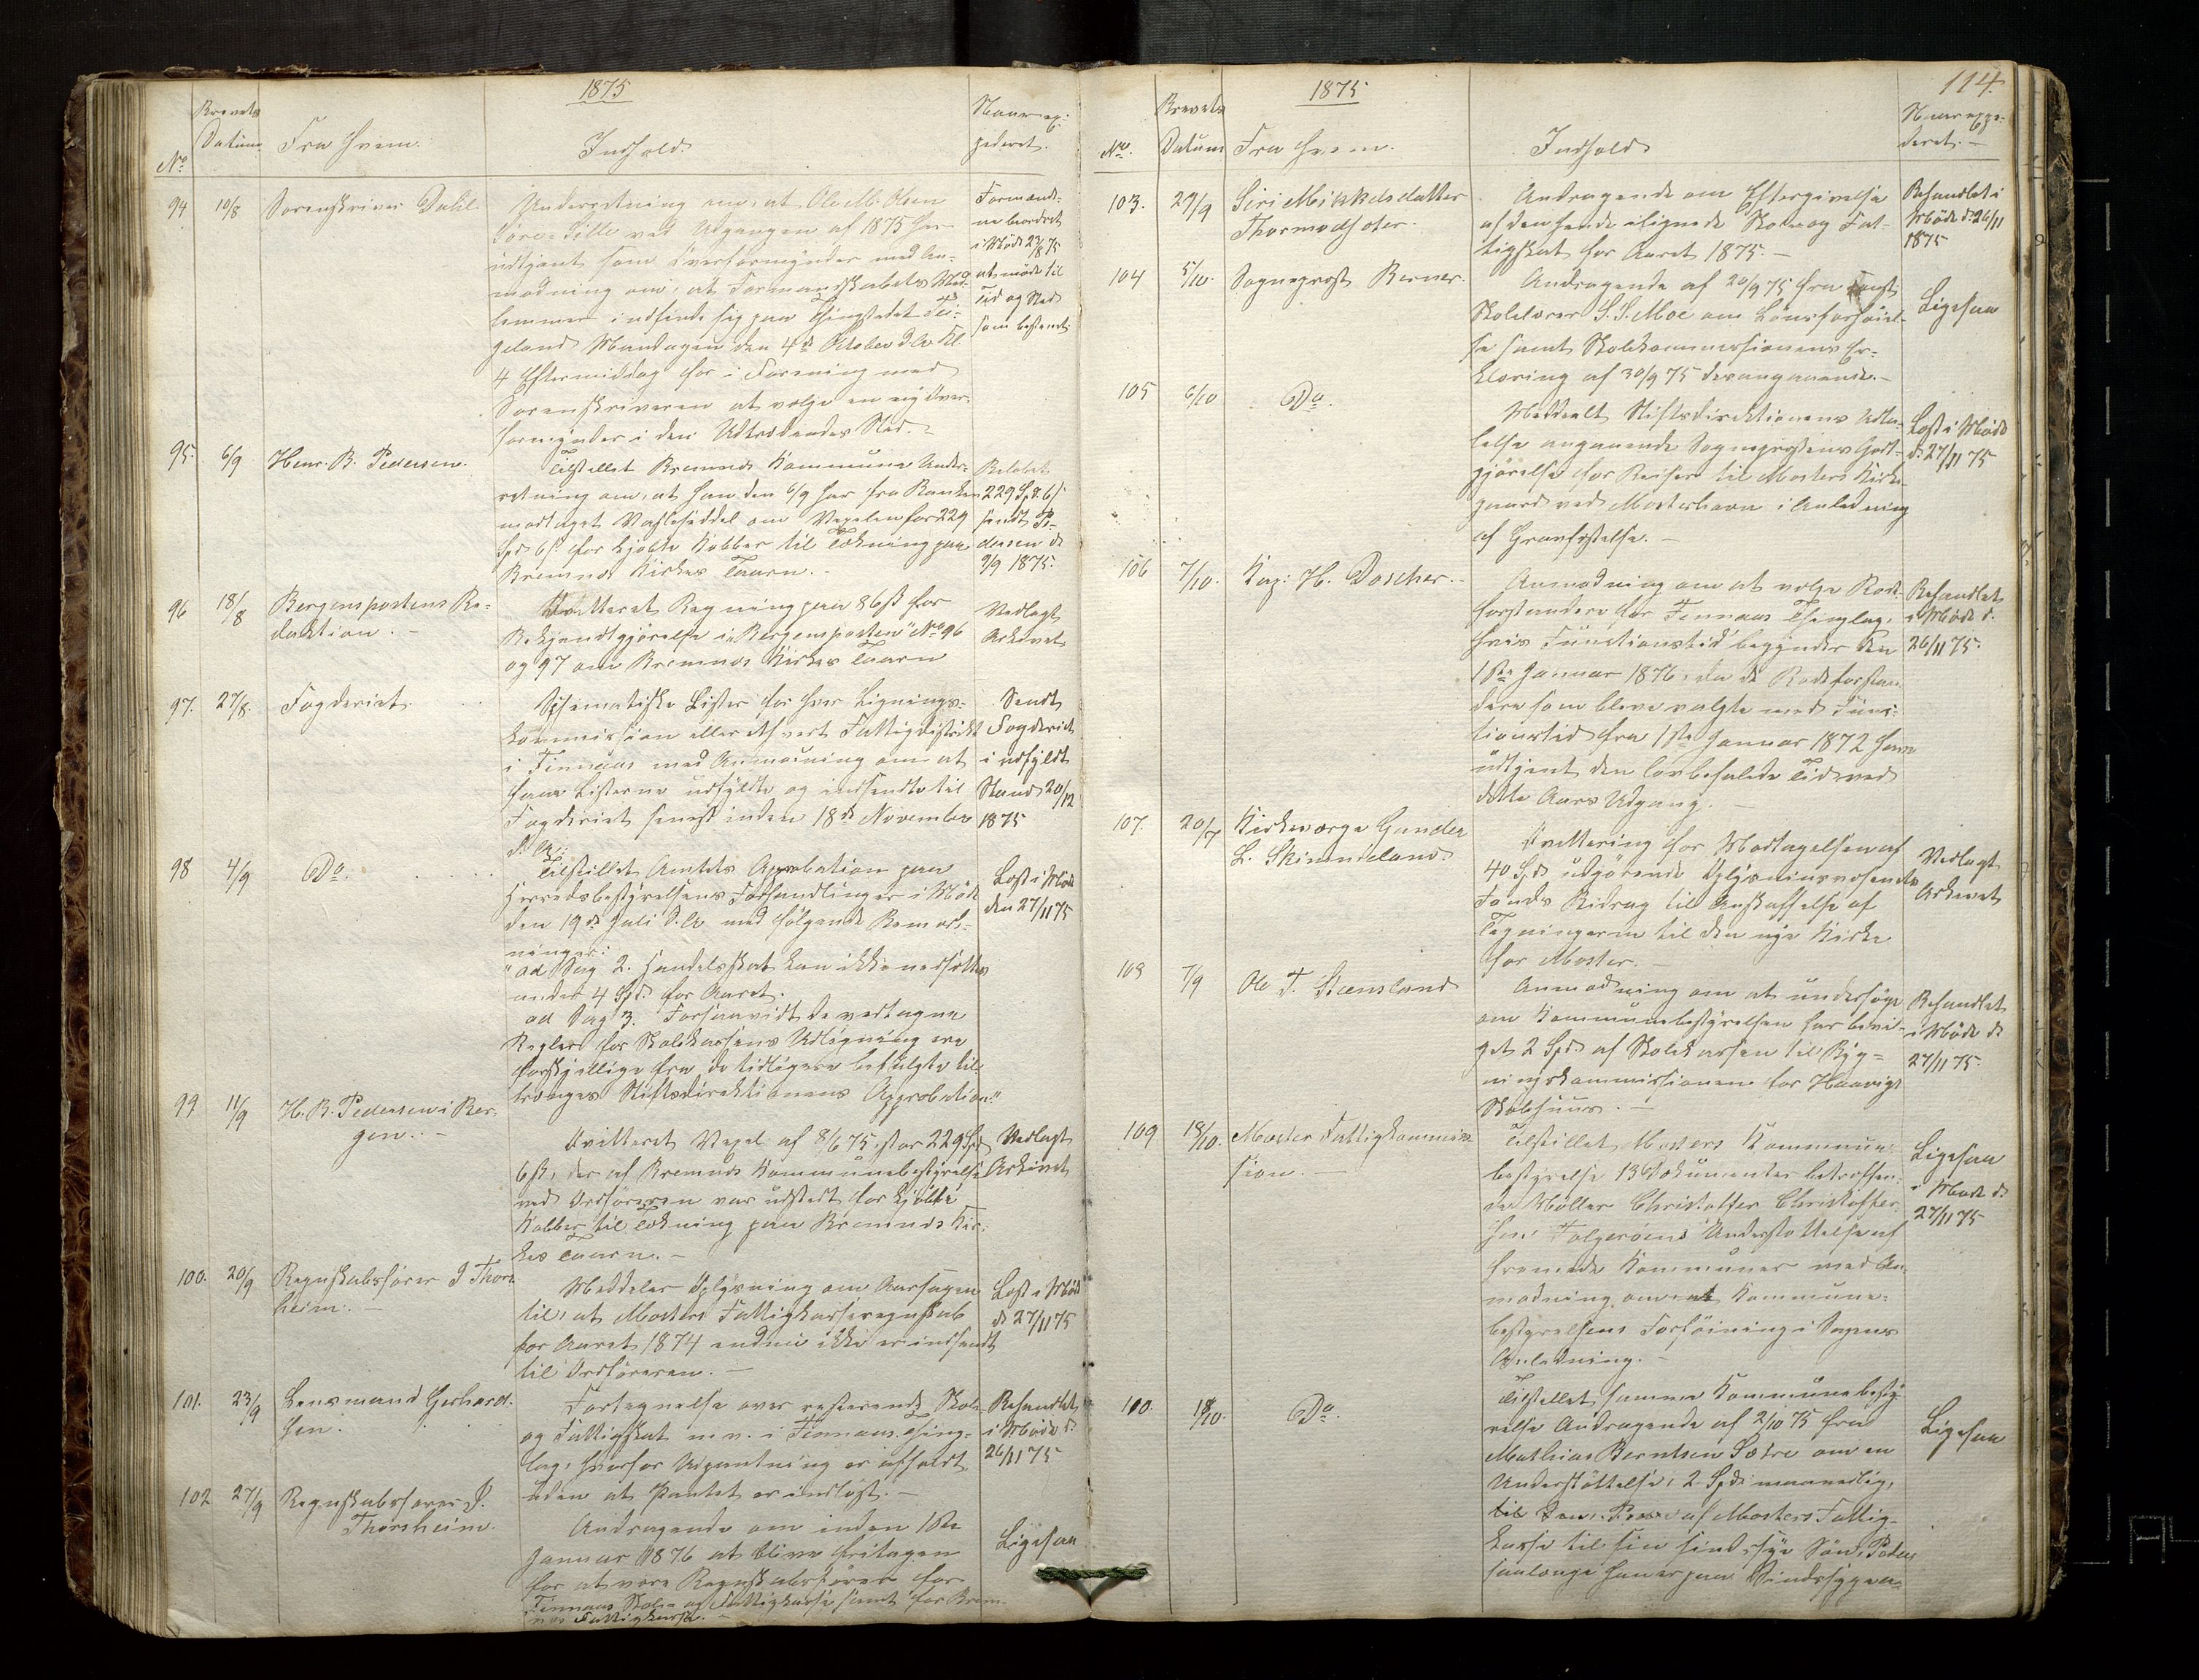 1875
Brevets
Datum
No
Fra hvem.
Indhold.
Naar ex-
pederet.
94 10/8 Sorenskriver Dahl.
Underretning om, at Ole M. Olsen
Søre-Fille ved Udgangen af 1875 har
udtjent som Overformynder med An-
modning om, at Formandskabets Med-
lemmer indfinde sig paa Thingstedet Tei-
geland Mandagen den 4de Oktober d. A. Kl.
4 Eftermiddag for i Forening med
Sorenskriveren at vælge en ny Over-
formynder i den Udtrædendes Sted.
Formænd-
ne beordret
i Møde
at møde til
Tid og Sted
som bestemt
95. 6/9 Henr. B. Pedersen.
Tilstillet Bremnes Kommune Under-
retning om, at han den 6/9 har fra Banken
modtaget Vexelseddel om Vexelen for 229
Spd 6 ß for kjøbte Kobber til Tækning paa
Bremnes Kirkes Taarn.
Beløbet
229 Spd. 6 ß
sendt Pe-
dersen d.
9/9 1875.
96 18/8 Bergenspostens Re-
daktion.
Kvitteret Regning paa 86 ß for
Bekjendtgjørelse i "Bergensposten" No 96
og 97 om Bremnes Kirkes Taarn
Vedlagt
Arkivet
97. 27/8. Fogderiet.
Schematiske Lister for hver Lignings-
kommission eller ethvert Fattigdistrikt
i Finnaas med Anmodning om at
faae Listerne udfyldte og indsendte til
Fogderiet senest inden 18de November
d. A.
Sendt
Fogderiet
i udfyldt
Stand 20/12
1875
98 4/9 Do.
Tilstillet Amtets Approbation paa
Herredsbestyrelsens Forhandlinger i Møde
den 19de Juli d. A. med følgende Bemærk-
ninger:
"ad Sag 2. Handelsskat kan ikke nedsættes
under 4 Spd. for Aaret.
ad Sag 3. Forsaavidt de vedtagne
Regler for Skolekassens Udligning ere
forskjellige fra de tidligere befulgte til-
trænges Stiftsdirektionens Approbation."
Læst i Møde
den 27/11 75
99 11/9 H. B. Pedersen i Ber-
gen.
Kvitteret Vexel af 8/6 75, stor 229 Spd
6 ß, der af Bremnes Kommunebestyrelse
ved Ordføreren var udstedt for kjøbte
Kobber til Tækning paa Bremnes Kir-
kes Taarn.
Vedlagt
Arkivet
100. 20/9 Regnskabsfører P Thors-
heim.
Meddeler Oplysning om Aarsagen
til, at Mosters Fattigkasseregnskab
for Aaret 1874 endnu ikke er indsendt
til Ordføreren.
Læst i Møde
d. 27/11 75
101. 23/9 Lensmand Gerhard-
sen.
Fortegnelse over resterende Skole-
og Fattigskat m. v. i Finnaas Thing-
lag, hvorfor Udpantning er afholdt
uden at Pantet er indløst.
Behandlet
i Møde d.
26/11 75
102 27/9 Regnskabsfører P.
Thorsheim.
Andragende om inden 1ste
Januar 1876 at blive fritagen
for at være Regnskabsfører for
Finnaas Skole- og Fattigkasse samt for Brem-
nes Fattigkasse.
Ligesaa
1875
114.
Brevets
No. Datum Fra hvem.
Indhold
Naar expe-
deret.
103. 29/9 Siri Mikkelsdatter
Thormodsæter.
Andragende om Eftergivelse
af den hende ilignede Skole og Fat-
tigskat for Aaret 1875.
Behandlet i
Møde d. 26/11
1875
104 5/10. Sogneprest Berner.
Andragende af 20/9 75 fra
Skolelærer S. S. Moe om Lønsforhøiel-
se samt Skolekommissionens Er-
klæring af 30/9 75 desangaaende.
Ligesaa
105 6/10 Do.
Meddeelt Stiftsdirektionens Udta-
lelse angaaende Sogneprestens Godt-
gjørelse for Reiser til Mosters Kirke-
gaard ved Mosterhavn i Anledning
af Gravfæstelse.
Læst i Møde
d. 27/11 75
106 7/10. Kap: H. Doscher.
Anmodning om at vælge Rode-
forstandere for Finnaas Thinglag,
hvis Functionstid begynder den
1ste Januar 1876, da de Rodeforstan-
dere som bleve valgte med Func-
tionstid fra 1ste Januar 1872 have
udtjent den lovbefalede Tid ved
dette Aars Udgang.
Behandlet
i Møde d.
26/11 75.
107. 20/7 Kirkeværge Gunder
L. Skimmeland.
Kvittering for Modtagelsen af
40 Spd. udgjørende Oplysningsvæsenets
Fonds Bidrag til Anskaffelse af
Tegningerne til den nye Kirke
for Moster.
Vedlagt
Arkivet
108 7/9 Ole T. Stensland
Anmodning om at undersøge
om Kommunebestyrelsen har bevil-
get 2 Spd. af Skolekassen til Byg-
ningskommissionen for Haavigs
Skolehuus.
Behandlet
i Møde d.
27/11 75.
109 18/10. Moster Fattigkommis-
sion.
Tilstillet Mosters Kommune-
bestyrelse 13 Dokumenter betræffen-
de Møller Christoffer Christoffer-
sen Folgerøens Understøttelse af
fremmede Kommuner med An-
modning om at Kommune-
bestyrelsens Forføining i Sagens
Anledning.
Ligesaa
i Møde d.
27/11 75
110. 18/10. Do.
Tilstillet samme Kommunebesty-
relse Andragende af 2/10 75 fra
Mathias Berntsen Sætre om en
Understøttelse, 2 Spd. maanedlig,
til af Mosters Fattig-
kasse til sin sindssyge Søn, Peder
saalænge han er paa Sindssygean-
Ligesaa